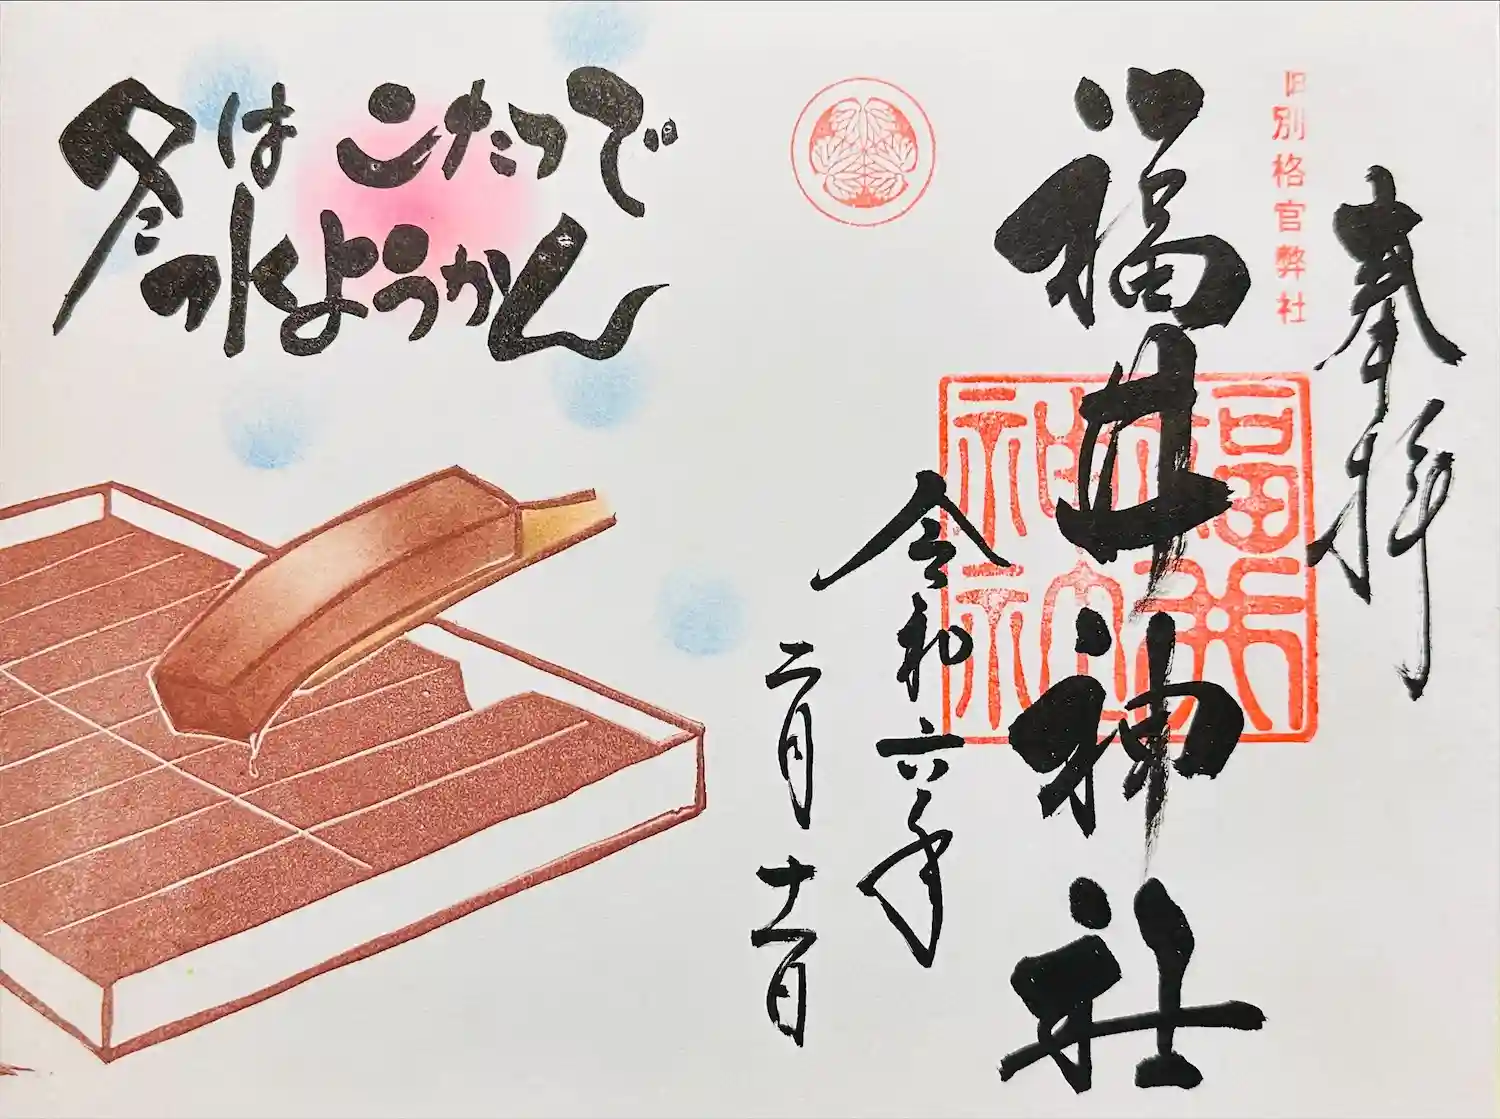 奉拝
旧別格官幣社
福井神社
福井神社
令和六年
二月十一日
冬はこたつで
水ようかん